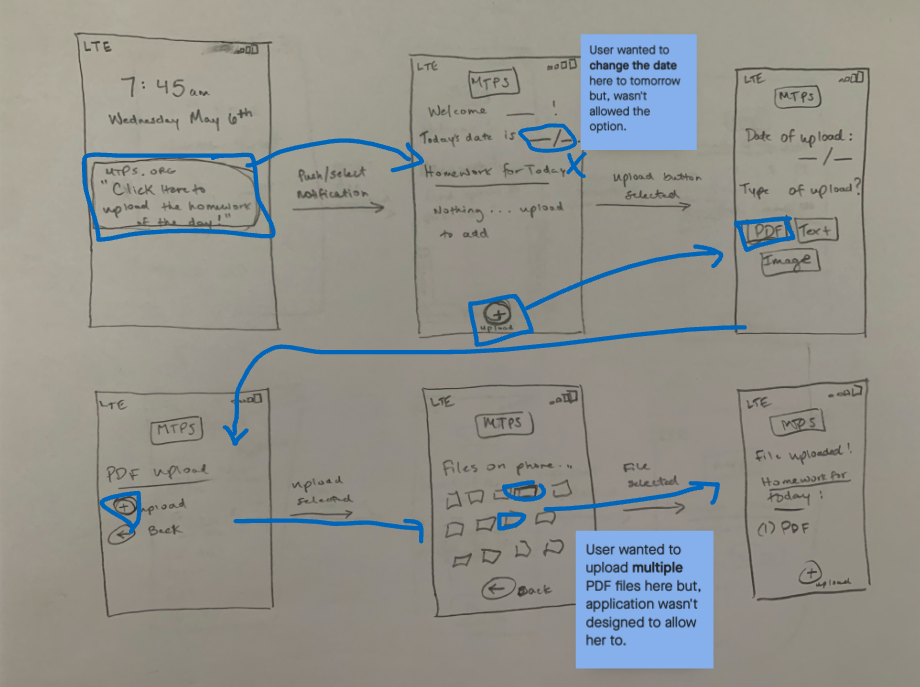 LTE
7:45am
Wednesday May 6th
MTPS.ORG
"Click Here to
upload the homework
of the day!"
Push/select
notification
LTE
MTPS
Welcome ___ !
Today's date is _/_
Homework for Today
X
Nothing... upload
to add
+
upload
User wanted to
change the date
here to tomorrow
but, wasn't
allowed the
option.
upload button
selected
LTE
MTPS
Date of upload:
_/_
Type of upload?
PDF Text
Image
LTE
MTPS
PDF upload
+ upload
Back
upload
selected
LTE
MTPS
Files on phone...
Back
File
selected
User wanted to
upload multiple
PDF files here but,
application wasn't
designed to allow
her to.
LTE
MTPS
File uploaded!
Homework for
today:
(1) PDF
+
upload